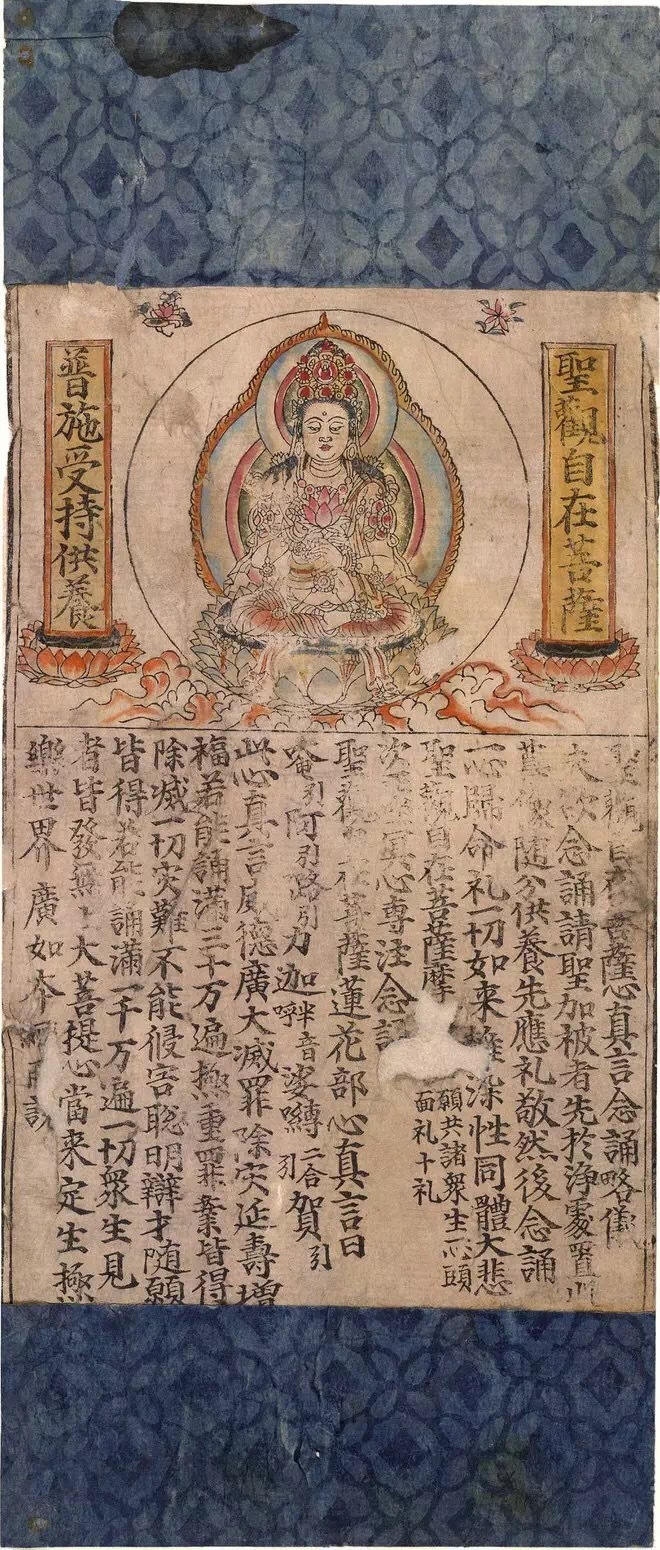 聖觀自在菩薩
普施受持供養
聖觀自在菩薩心真言念誦略儀
夫欲念誦請聖加被者先於淨處置
像隨分供養先應礼敬然後念誦
一心歸命礼一切如来離染性同體大悲
聖觀自在菩薩摩
願共諸衆生一心頭
面礼十礼
次冥心專注念誦
聖觀自在菩薩蓮花部心真言曰
唵引阿引路引力迦半音呼娑嚩二合引賀引
此心真言威德廣大滅罪除灾延壽增
福若能誦滿三十万遍極重罪業皆得
除滅一切灾難不能侵害聡明辯才隨願
皆得若能誦滿一千万遍一切衆生見
者皆發無上大菩提心當来定生極
樂世界廣如本經所說